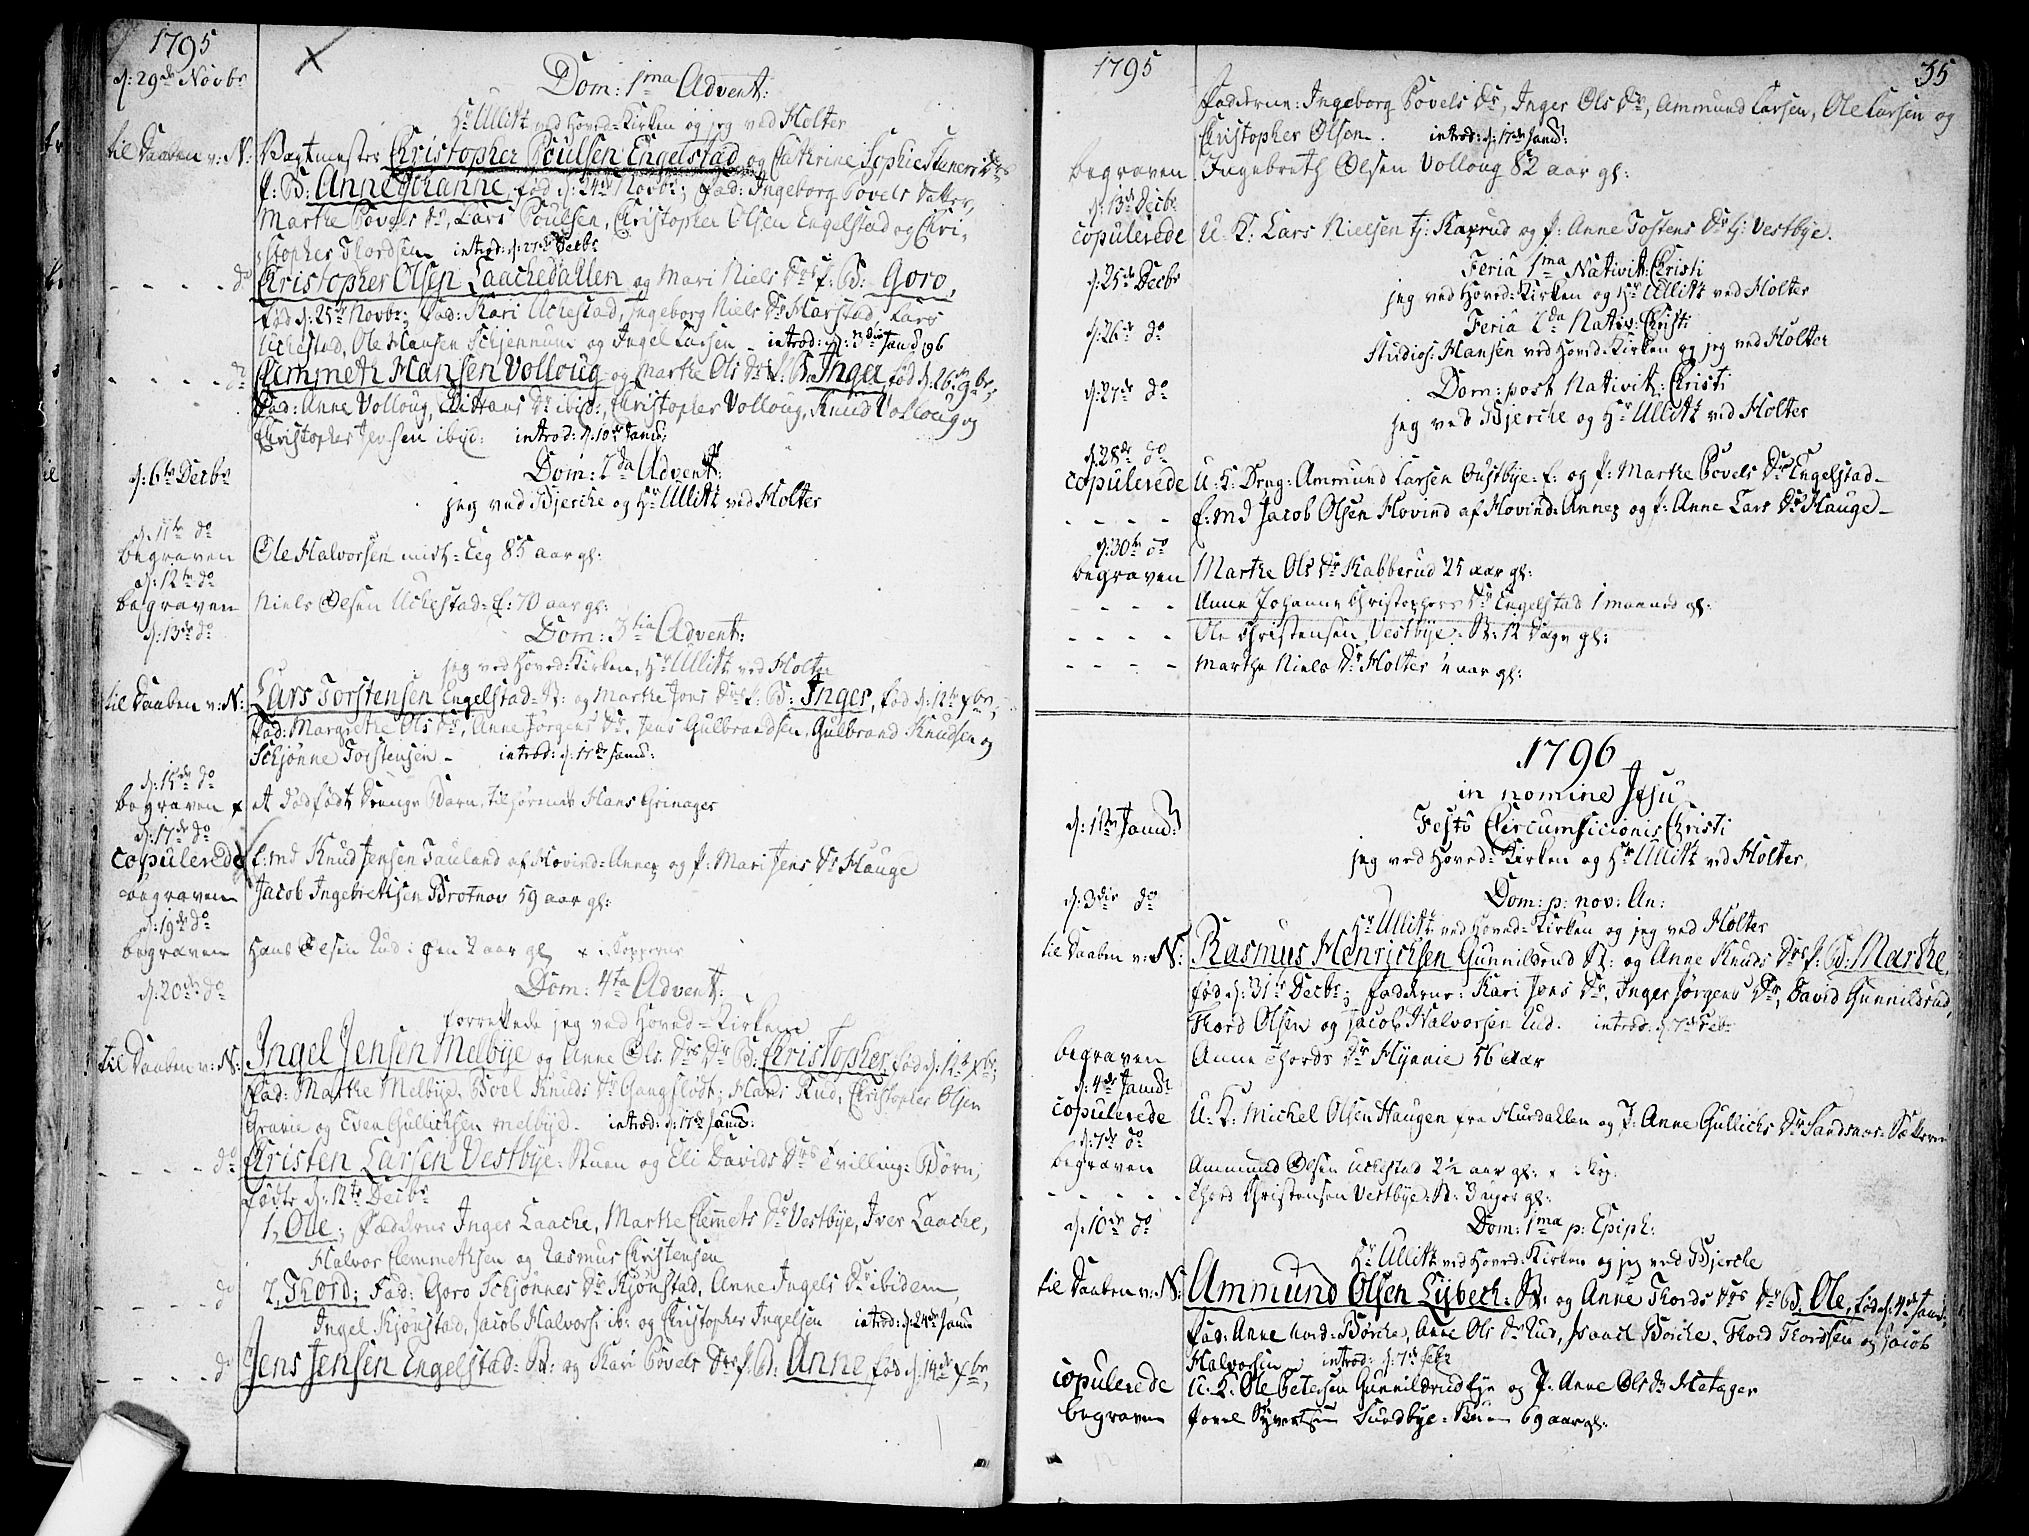 1795
d: 29de Novbr
Dom: 1ma Advent:
Hr Ullitz ved Hoved-Kirken og jeg ved Holter
til Daaben v: N: Vagtmester Christopher Poulsen Engelstad og Cathrine Sophie
f: B: Anne Johanne, fød d: 24de Novbr; fad: Ingeborg Povels Datter,
Marthe Povels Dr, Lars Poulsen, Christopher Olsen Engelstad og Chri-
stopher Thordsen introd: d: 27de Decbr
- - - - do Christopher Olsen Laachedallen og Mari Niels Drs f: B: Goro,
fød d: 25de Novbr; fad: Kari Uchestad, Ingeborg Niels Dr Harstad, Lars
Uchestad, Ole Hansen Schjennum og Ingel Larsen - introd: d: 3die Janv 96
- - - - do Clemmeth Hansen Volloug og Marthe Ols Drs f: B: Inger fød d: 26de 9br,
Fad: Anne Volloug, ibid:, Christopher Volloug, Knud Volloug og
Christopher Jensen ibid: introd: d: 10de Janv:
Dom: 2da Advent:
d: 6te Decbr
jeg ved Bjerche og Hr Ullitz ved Holter
d: 11te do
begraven Ole Halvorsen Eeg 85 aar gl:
d: 12te do
begraven Niels Olsen Uchestad-E: 70 aar gl:
d: 13de do
Dom: 3tia Advent:
jeg ved Hoved-Kirken, Hr Ullitz ved Holter
til Daaben v: N: Lars Torstensen Engelstad-R: og Marthe Jons Drs f: B: Inger, fød d: 12te xbr,
Fad: Margrethe Ols Dr, Anne Jørgens Dr, Jens Gulbrandsen, Gulbrand Knudsen og
Schjønne Torstensen - introd: d: 17de Janv:
d: 15de do
begraven et dødfødt Drenge Barn, tilhørende Hans Grinager
d: 17de do
copulerede f: md Knud Jensen Tauland af Hovind: Annex og P: Mari Jens Dr Hauge
begraven Jacob Ingebrethsen Brotnov 59 aar gl:
d: 19de do
begraven Hans Olsen Rud i gen 2 aar gl x i Kopperne
d: 20de do
Dom: 4ta Advent:
forrettede jeg ved Hoved-Kirken
til Daaben v: N: Ingel Jensen Melbye og Anne Ols Drs Dr B: Christopher, fød d: 12te xbr;
Fad: Marthe Melbye, Boel Knuds Dr Gangflødt; Hans Rud, Christopher Olsen
Gravie og Even Gullichsen Melbye. introd: d: 17de Janv:
- - - - do Christen Larsen Vestbye-Stuen og Eli Davids Drs Tvilling-Børn,
fødte d: 12te Decbr
1, Ole; Fadderne Inger Laache, Marthe Clemmets Dr Vestbye, Iver Laache,
Halvor Clemmethsen og Rasmus Christensen
- - - - do 2, Thord; Fad: Goro Schjønnes Dr Kjønstad, Anne Ingels Dr ibidem,
Ingel Kjønstad, Jacob Halvors: ib: og Christopher Ingelsen introd: d: 24de Janv
- - - - do Jens Jensen Engelstad-R: og Kari Povels Drs f: B: Anne fød d: 14de xbr,
1795
35
Fadderne: Ingeborg Povels Dr, Inger Ols Dr, Ammund Larsen, Ole Larsen og
Christopher Olsen. introd: d: 17de Janv:
begraven Ingebreth Olsen Volloug 82 aar gl:
d: 13de Decbr
copulerede U: K: Lars Nielsen tj: Kaxrud og P: Anne Tostens Dr tj: Vestbye.
d: 25de Decbr
Feria 1ma Nativit: Christi
jeg ved Hoved-Kirken og Hr Ullitz ved Holter
d: 26de do
Feria 2da Nativ: Christi
Studios: Hansen ved Hoved-Kirken og jeg ved Holter
d: 27de do
Dom: post Nativit: Christi
jeg ved Bjerche og Hr Ullitz ved Holter
d: 28de do
copulerede U: K: Drag: Ammund Larsen Oustbye-E: og P: Marthe Povels Dr Engelstad-
- - - - f: md Jacob Olsen Hovind af Hovind: Annex og P: Anne Lars Dr Hauge-
d: 30te do
begraven Marthe Ols Dr Kabberud 25 aar gl:
- - - - Anne Johanne Christophers Dr Engelstad 1 maaned gl:
- - - - Ole Christensen Vestbye-St: 12 Dage gl:
- - - - Marthe Niels Dr Holter ½ aar gl:
1796
in nomine Jesu
d: 1te Janv:
Festo Circumsicionis Christi
jeg ved Hoved-Kirken og Hr Ullitz ved Holter,
d: 3die do
Dom: p: nov: An:
Hr Ullitz ved Hoved-Kirken og jeg ved Holter
til Daaben v: N: Rasmus Henrichsen Gunnildrud R: og Anne Knuds Drs f: B: Marthe,
fød d: 31te Decbr; Fadderne: Kari Jons Dr, Inger Jørgens Dr, David Gunnildrud,
Thord Olsen og Jacob Halvorsen Rud. introd: d: 7de Febr
begraven Anne Thords Dr Hynnie 56 Aar
d: 4de Janv:
copulerede U: K: Michel Olsen Haugen fra Hurdallen og P: Anne Gullichs Dr Sandsnes-Sættren
d: 7de do
begraven Ammund Olsen Uchestad 2½ aar gl: x i Kop.
- - - - Thord Christensen Vestbye-St: 3 uger gl:
d: 10de do
Dom: 1ma p: Epiph:
Hr Ullitz ved Hoved-Kirken og jeg ved Bjerche
til Daaben v: N: Ammund Olsen Lybech-R: og Anne Thords Drs Dr B: Ole, fød d: 4de Janv,
Fad: Anne nord-Børche, Anne Ols Dr Rud, Isaach Børche, Thord Thordsen og Jacob
Halvorsen introd: d: 7de Febr
copulerede U: K: Ole Petersen Gunnildrud Eye og P: Anne Ols Dr Hetager
begraven Povel Syvertsen Sundbye-Stuen 69 aar gl: